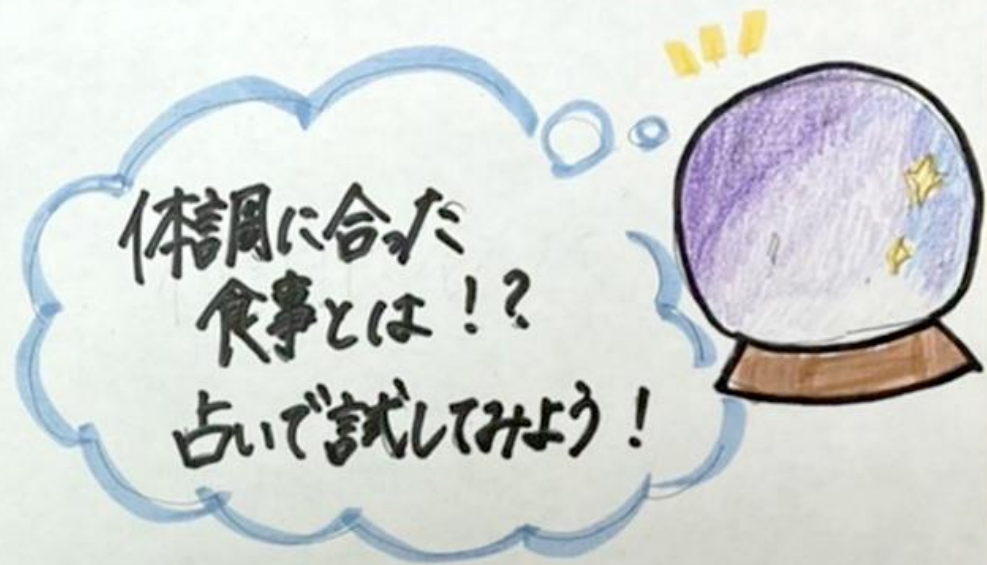 体調に合った
食事とは!?
占いで試してみよう!